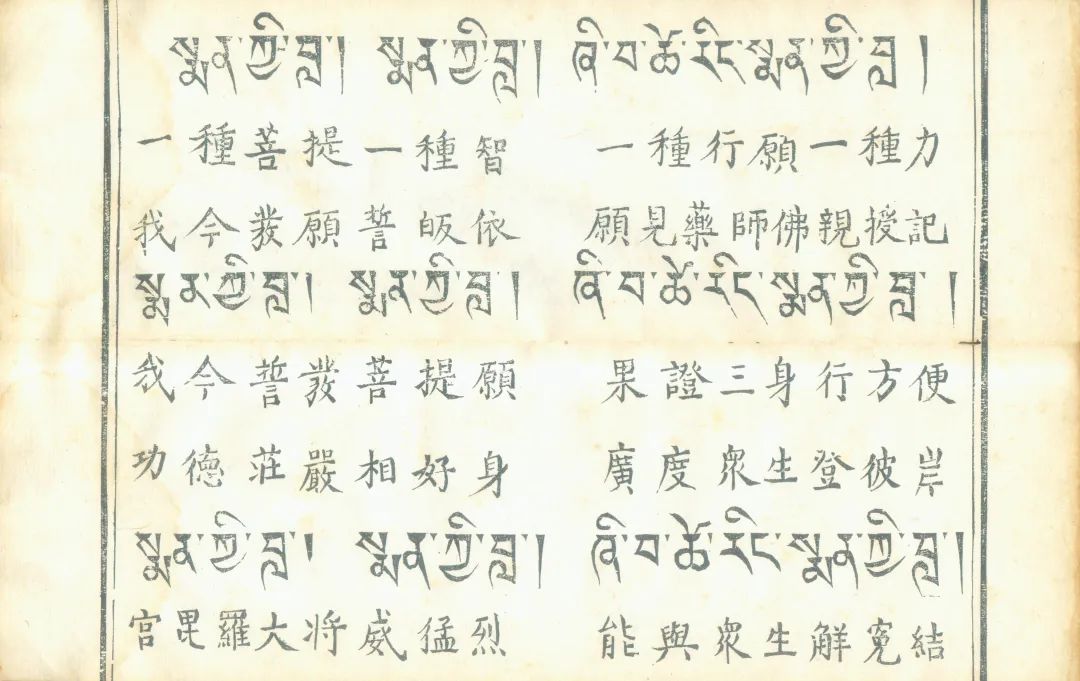 སྨན་ཀྱི་བླ། སྨན་ཀྱི་བླ། ཞི་བ་ཚེ་རིང་སྨན་ཀྱི་བླ །
一種菩提一種智 一種行願一種力
我今發願誓皈依 願見藥師佛親授記
སྨན་ཀྱི་བླ། སྨན་ཀྱི་བླ། ཞི་བ་ཚེ་རིང་སྨན་ཀྱི་བླ །
我今誓發菩提願 果證三身行方便
功德莊嚴相好身 廣度衆生登彼岸
སྨན་ཀྱི་བླ། སྨན་ཀྱི་བླ། ཞི་བ་ཚེ་རིང་སྨན་ཀྱི་བླ།
宮毘羅大將威猛烈 能與衆生解寃結